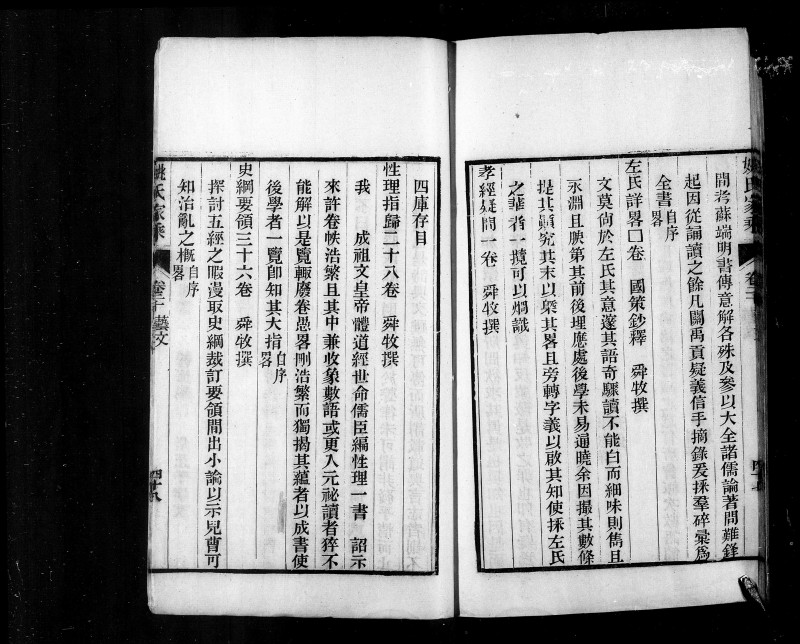 間考蘇端明書傳意解各殊及參以大全諸儒論著問難鋒
起因從誦讀之餘凡關禹貢疑義信手摘錄爰採羣碎彙爲
全書自序畧
左氏詳畧囗卷　國策鈔釋　舜牧撰
文莫尚於左氏其意邃其語奇驟讀不能白而細味則雋且
永淵且腴第其前後埋應處後學未易通曉余因撮其數條
提其顛究其末以槩其畧且旁轉字義以啟其知使採左氏
之華者一攬可以燜識
孝經疑問一卷　舜牧撰
四庫存目
性理指歸二十八卷　舜牧撰
我　成祖文皇帝體道經世命儒臣編性理一書　詔示
來許卷帙浩繁且其中兼收象數語或更入元祕讀者猝不
能解以是覽輒廢卷愚畧剛浩繁而獨揭其蘊者以成書使
後學者一覽卽知其大指自序畧
史綱要領三十六卷　舜牧撰
探討五經之暇漫取史綱裁訂要領間出小論以示兒曹可
知治亂之槪自序畧
姚氏家乘　卷三十藝文　四十八